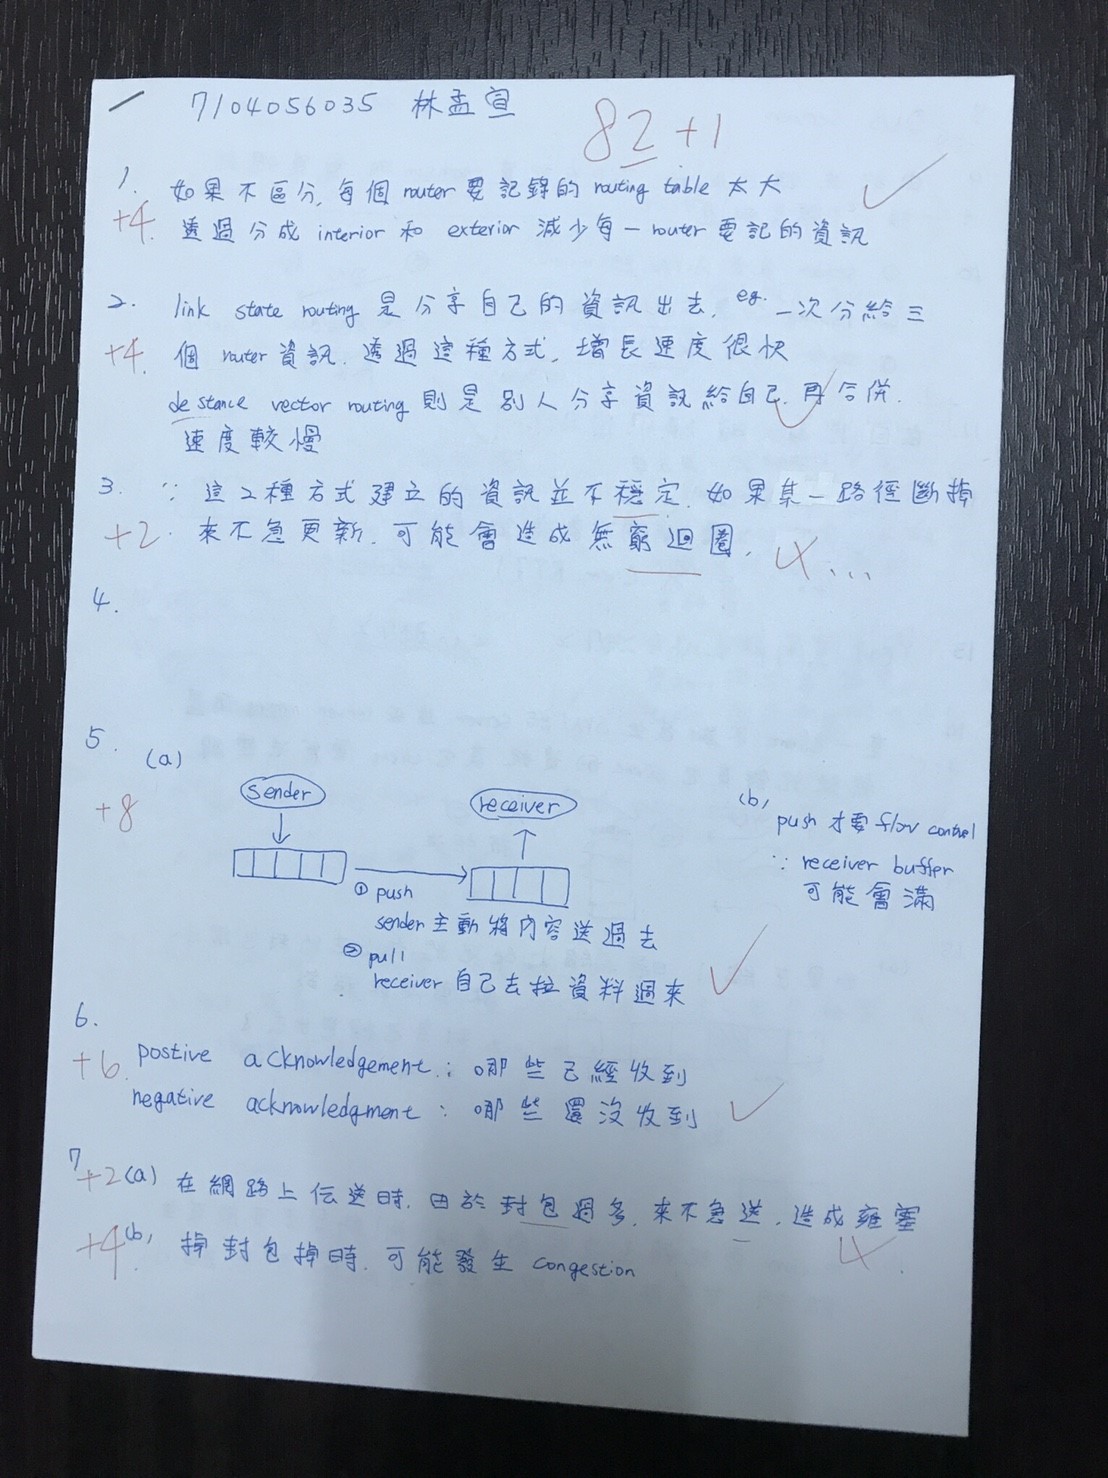 7104056035 林孟宣
82 +1
1. 如果不區分, 每個 router 要記錄的 routing table 太大
+4 透過分成 interior 和 exterior 減少每一 router 要記的資訊
2. link state routing 是分享自己的資訊出去, eg. 一次分給三
+4 個 router 資訊. 透過這種方式, 增長速度很快
destance vector routing 則是別人分享資訊給自己, 再合併.
速度較慢
3. ∵ 這2種方式建立的資訊並不穩定, 如果某一路徑斷掉
+2 來不急更新, 可能會造成無窮迴圈,
4.
5. (a)
+8
sender
receiver
① push
sender 主動將內容送過去
② pull
receiver 自己去拉資料過來
(b) push 才要 flow control
∵ receiver buffer
可能會滿
6.
+6 postive acknowledgement : 哪些已經收到
negative acknowledgment : 哪些還沒收到
7
+2 (a) 在網路上伝送時, 由於封包過多, 來不急送, 造成雍塞
+4 (b) 掉封包掉時, 可能發生 congestion